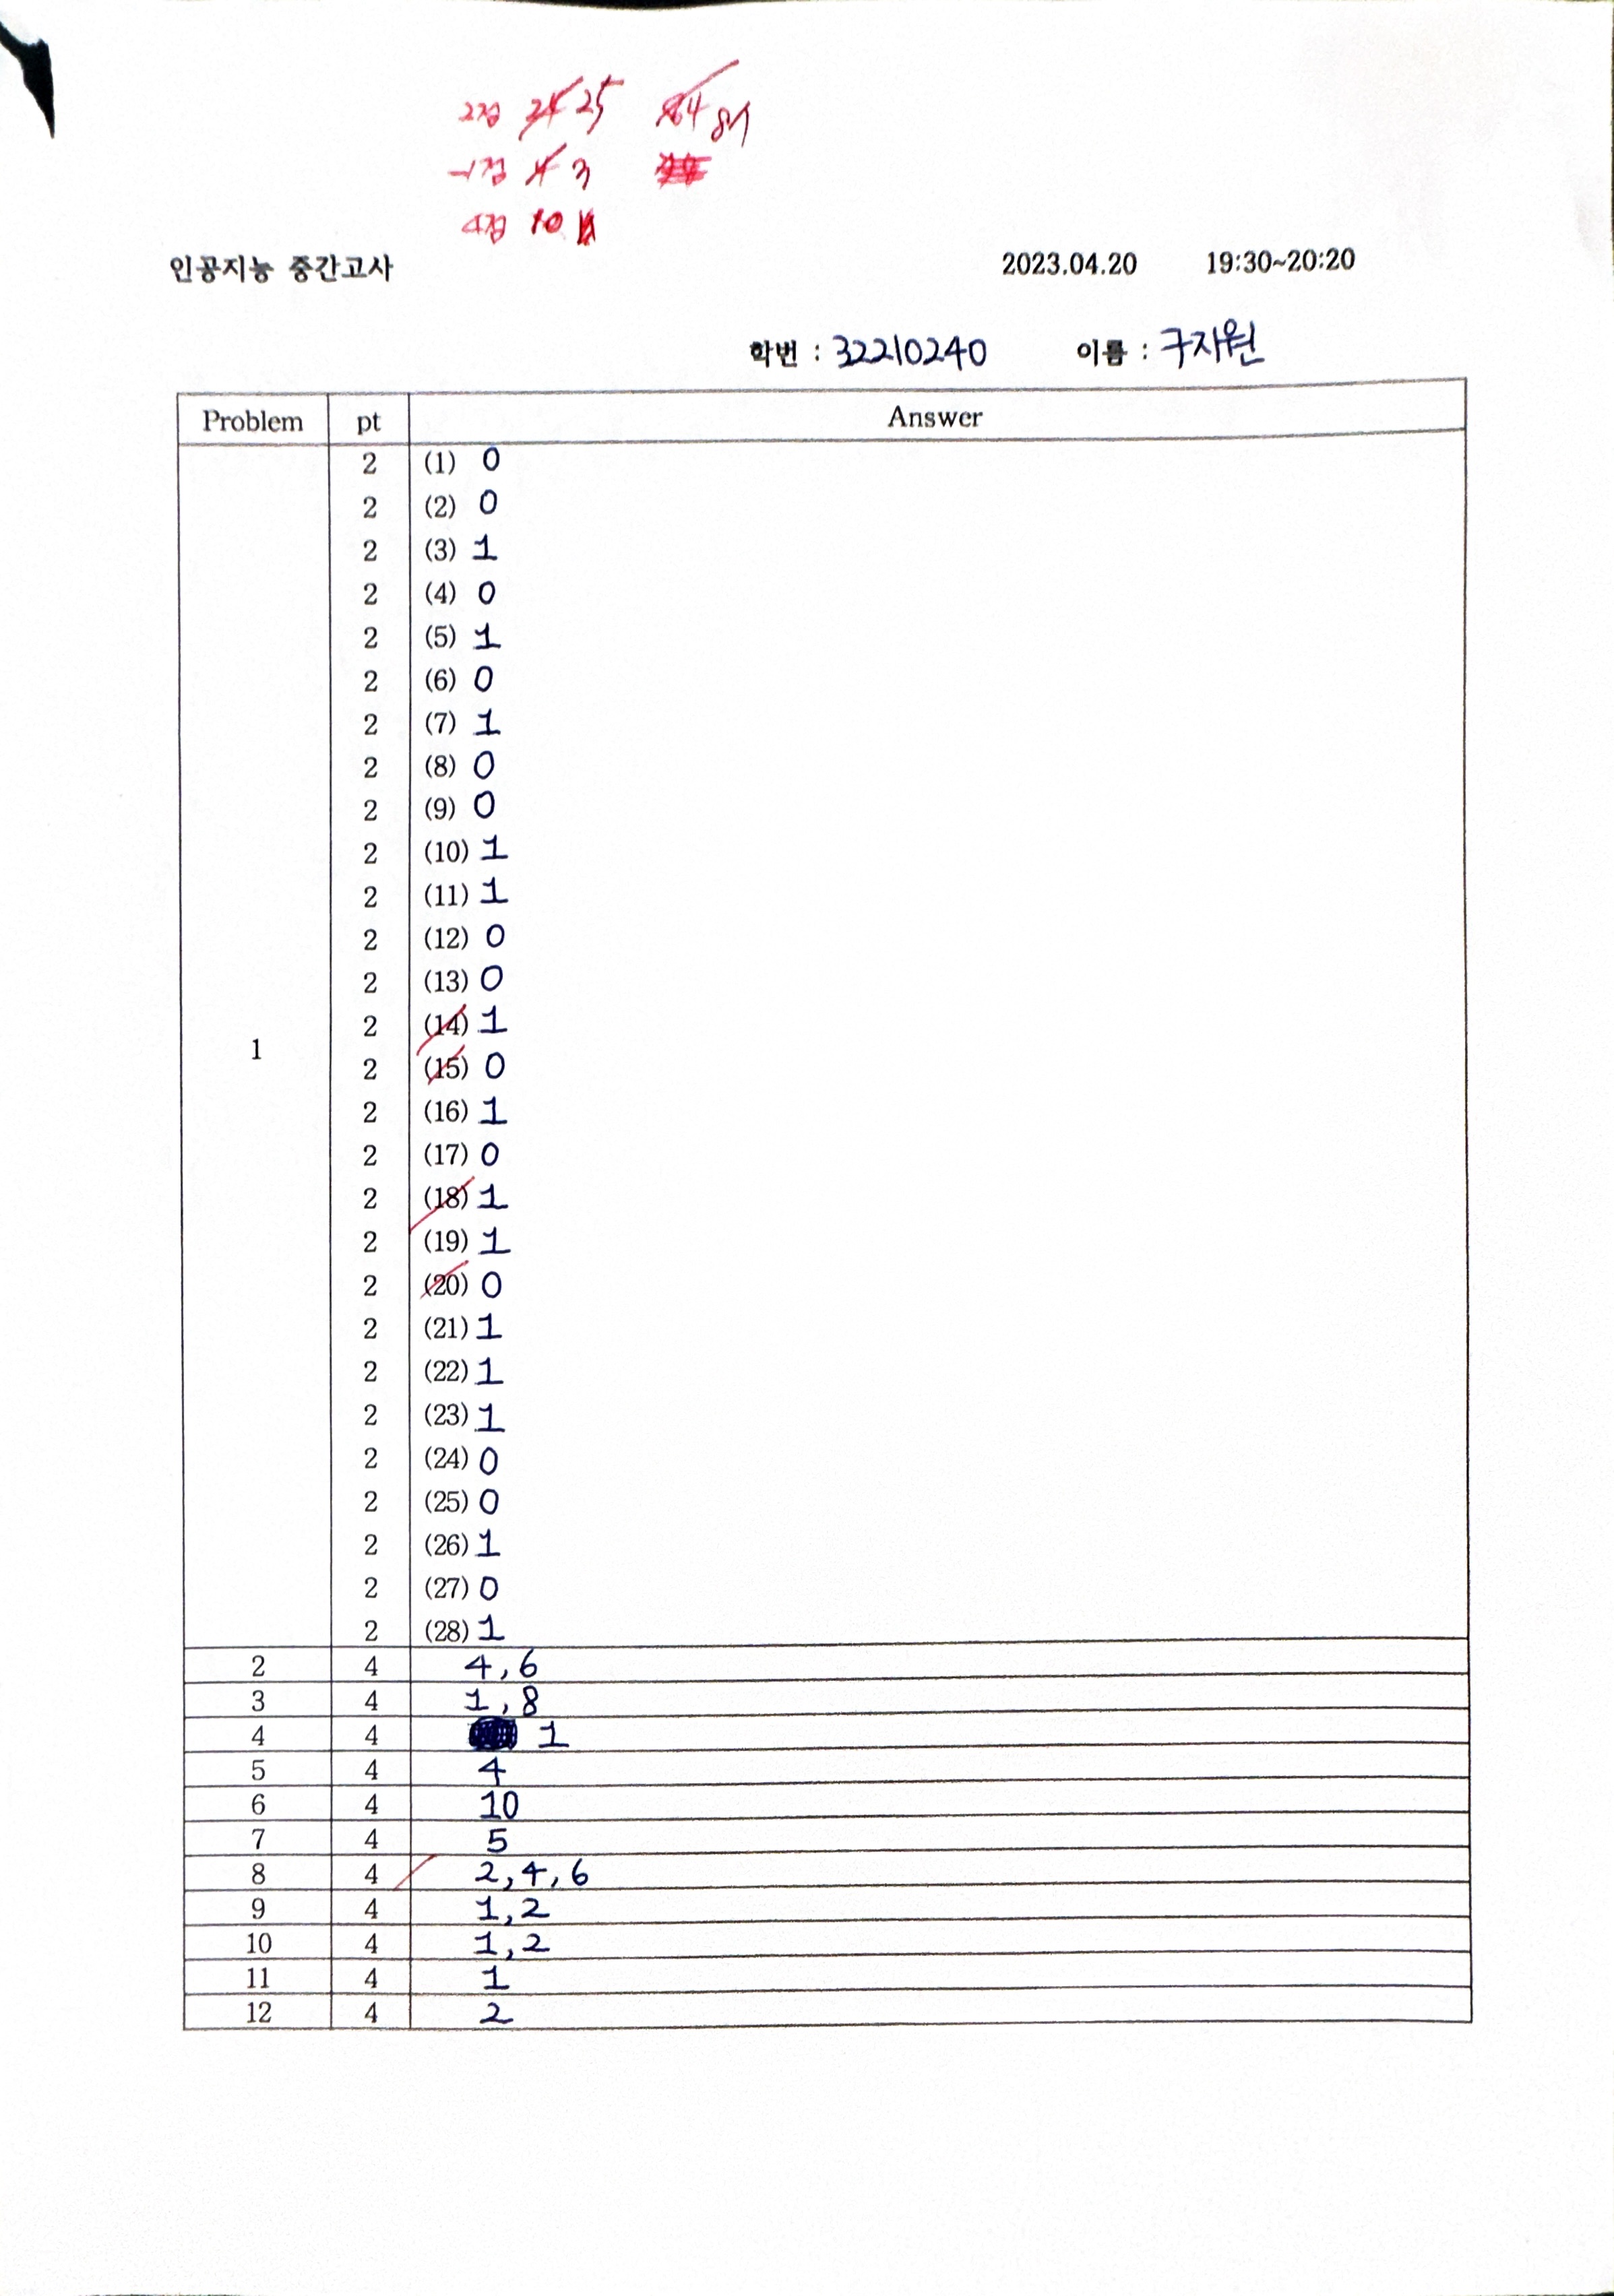 2점 24 25 84 87
-1점 4 3
4점 10
인공지능 중간고사 2023.04.20 19:30~20:20
학번 : 32210240 이름 : 구지원
Problem pt Answer
1
2 (1) 0
2 (2) 0
2 (3) 1
2 (4) 0
2 (5) 1
2 (6) 0
2 (7) 1
2 (8) 0
2 (9) 0
2 (10) 1
2 (11) 1
2 (12) 0
2 (13) 0
2 (14) 1
2 (15) 0
2 (16) 1
2 (17) 0
2 (18) 1
2 (19) 1
2 (20) 0
2 (21) 1
2 (22) 1
2 (23) 1
2 (24) 0
2 (25) 0
2 (26) 1
2 (27) 0
2 (28) 1
2 4 4, 6
3 4 1, 8
4 4 1
5 4 4
6 4 10
7 4 5
8 4 2, 4, 6
9 4 1, 2
10 4 1, 2
11 4 1
12 4 2